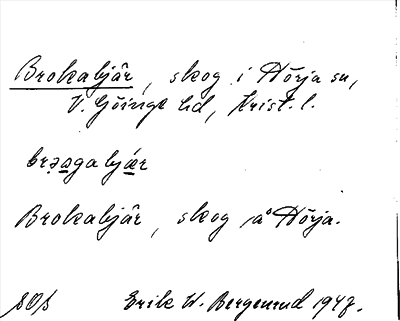 Brokabjär, skog i Hörja sn,
V. Göinge hd, Krist. l.
brə̣a̲gabjæ̲r
Brokabjär, skog på Hörja.
Erik W. Bergenrud 1947.